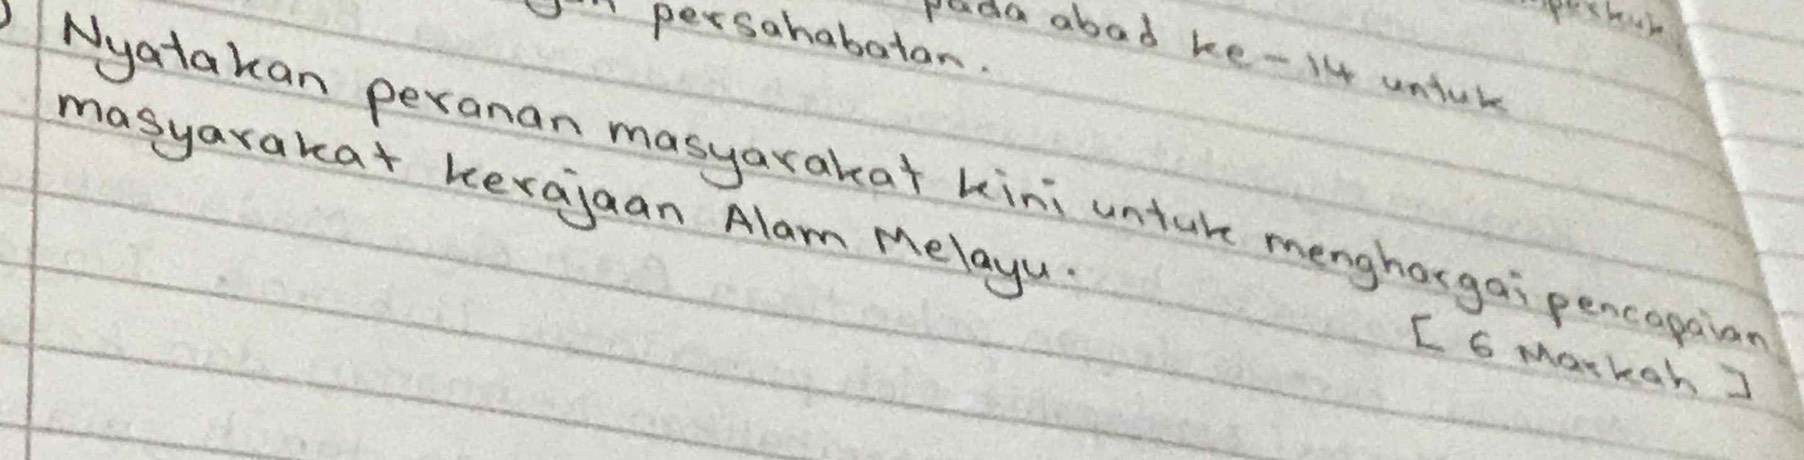 pada abad ke-14 untuk
persahabatan.
Nyatakan peranan masyarakat kini untuk menghargai pencapaian
masyarakat kerajaan Alam Melayu.
[ 6 Markah ]